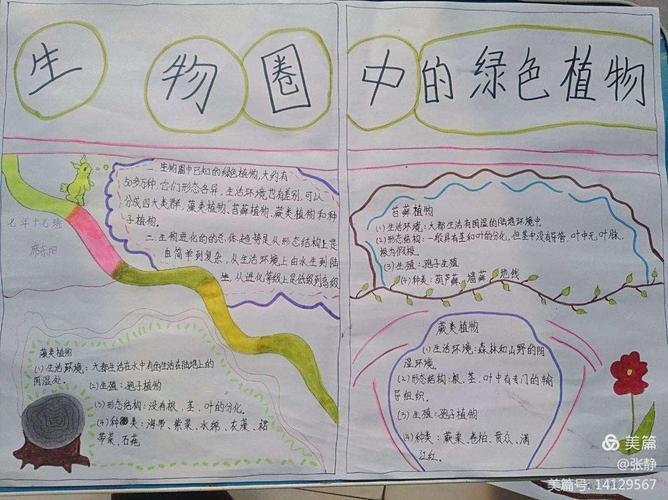 生物圈中的绿色植物
一.生物圈中已知的绿色植物,大约有
50多万种,它们形态各异,生活环境也有差别,可以
分成四大类群,藻类植物,苔藓植物,蕨类植物和种
子植物。
二.生物进化的的总体趋势是从形态结构上是
自简单到复杂,从生活环境上由水生到陆
生,从进化等级上是低级到高级
七年十七班
藻类植物
(1)生活环境:大都生活在水中有的生活在陆地上的
阴湿处。
(2)生殖:孢子植物
(3)形态结构:没有根、茎、叶的分化。
(4)种类:海带、紫菜、水绵、衣藻、裙
带菜、石莼
苔藓植物
(1)生活环境:大都生活在阴湿的陆地环境中
(2)形态结构:一般具有茎和叶的分化,但茎中没有导管,叶中无叶脉,
根为假根。
(3)生殖:孢子生殖
(4)种类:葫芦藓、墙藓、地钱
蕨类植物
(1)生活环境:森林和山野的阴
湿环境。
(2)形态结构:根、茎、叶中有专门的输
导组织。
(3)生殖:孢子植物
(4)种类:蕨菜、卷柏、贯众、满
江红。
美篇
@张静
美篇号:14129567